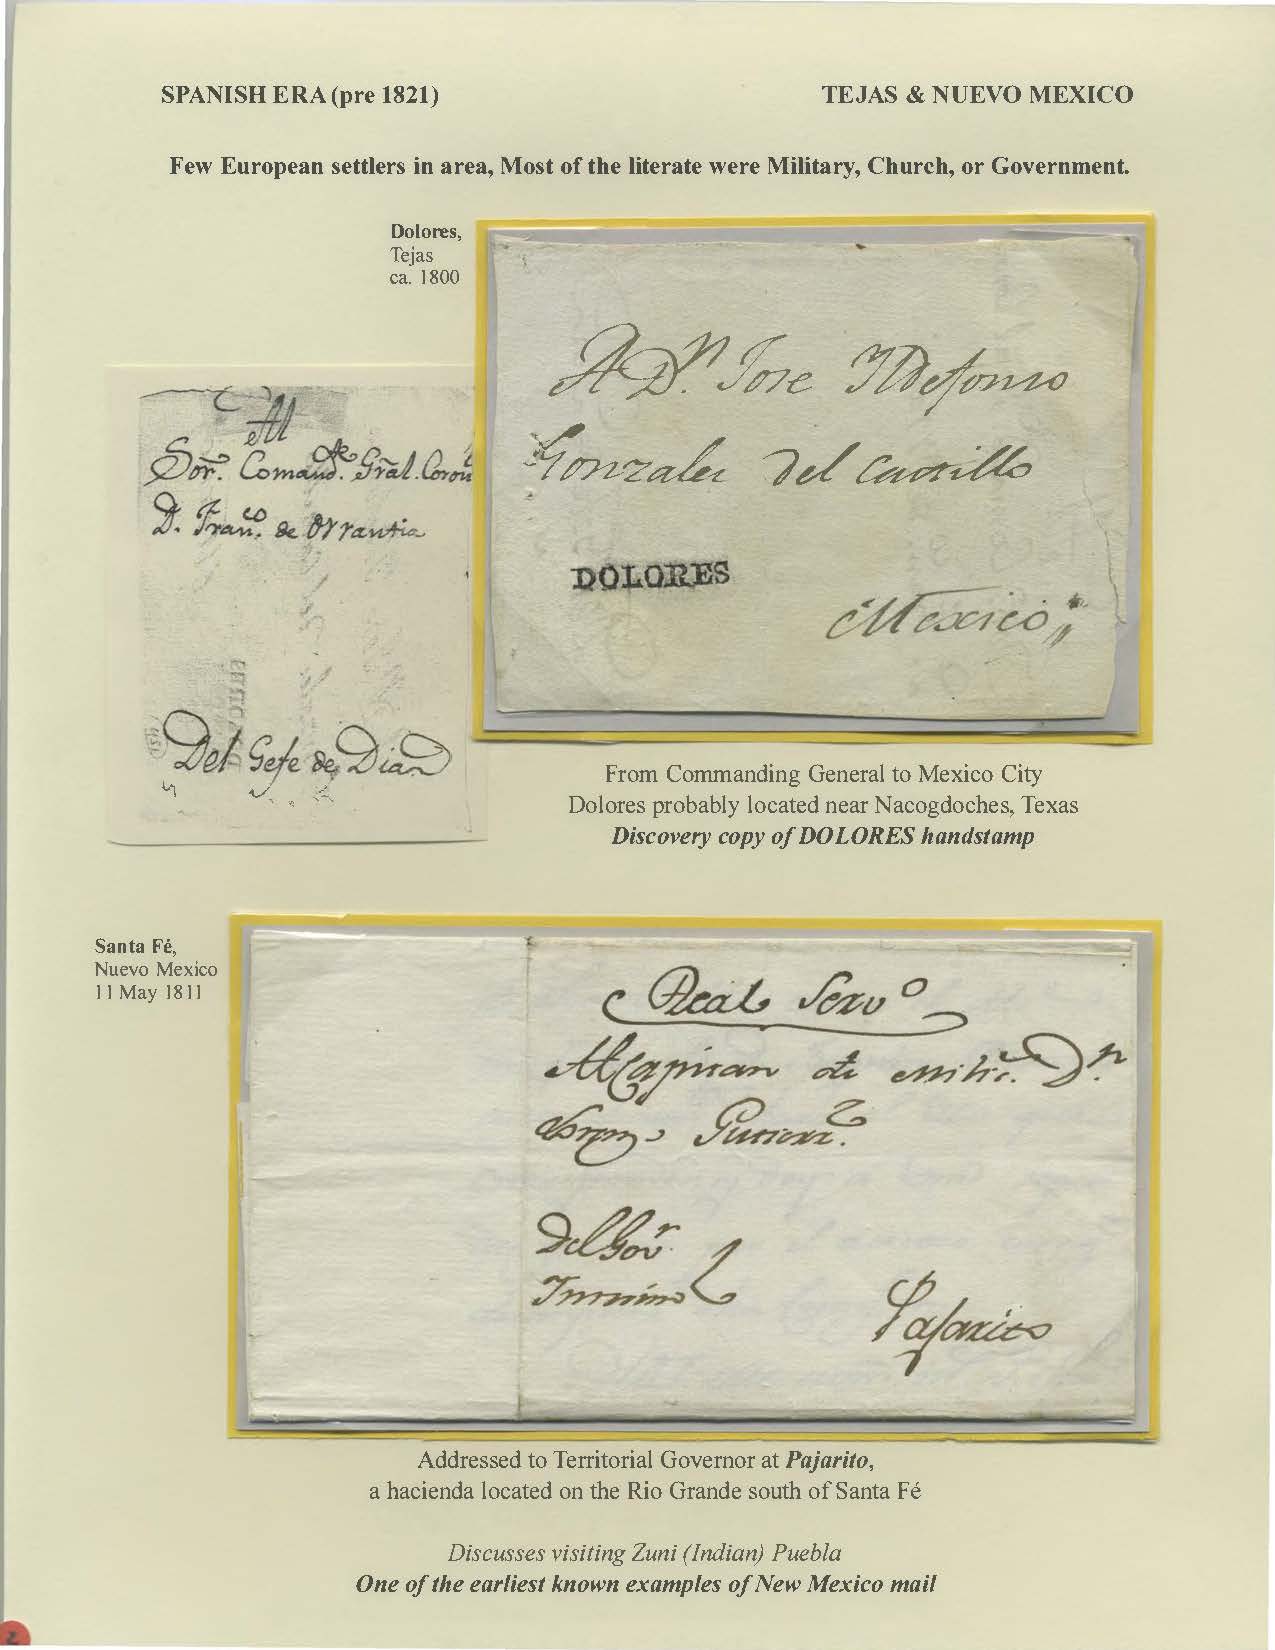 SPANISH ERA (pre 1821)
TEJAS & NUEVO MEXICO
Few European settlers in area, Most of the literate were Military, Church, or Government.
Dolores,
Tejas
ca. 1800
Al
Sor. Comandte. Gral. Coron
D. Franco. de Orrantia
Del Gefe de Dia
A Dn. Jose Ildefonso
Gonzalez del Castillo
DOLORES
Mexico
From Commanding General to Mexico City
Dolores probably located near Nacogdoches, Texas
Discovery copy of DOLORES handstamp
Santa Fé,
Nuevo Mexico
11 May 1811
Real Servo
Al Capitan de Milic. Dn.
Gutierrz.
Del Gov.r
Interino
Pajarito
Addressed to Territorial Governor at Pajarito,
a hacienda located on the Rio Grande south of Santa Fé
Discusses visiting Zuni (Indian) Puebla
One of the earliest known examples of New Mexico mail
2